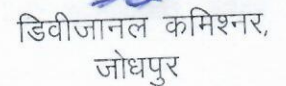 डिवीजानल कमिश्नर,
जोधपुर